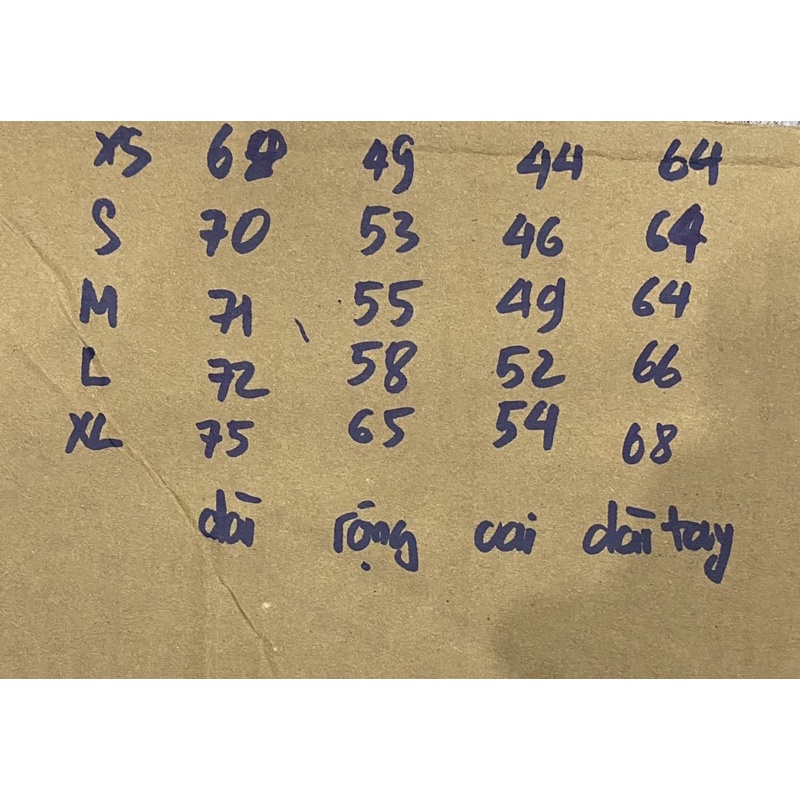 XS 49 44 64
S 70 53 46 64
M 71 55 49 64
L 72 58 52 66
XL 75 65 54 68
dài rộng vai dài tay